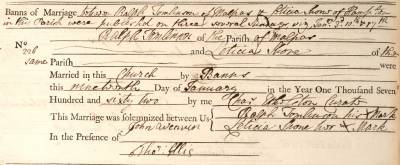 Banns of Marriage between Ralph Tomlinson of Malpas & Leticia Shone of
in this Parish were published on three several Sundays viz Jan: 3d. 10th & 17th
Ralph Tomlinson of the Parish of Malpas
No
226 and Leticia Shone of the
same Parish
Married in this Church by Banns
this nineteenth Day of January in the Year One Thousand Seven
Hundred and sixty two by me Curate
This Marriage was solemnized between Us Ralph Tomlinson his X Mark
Leticia Shone her X Mark
In the Presence of John
Tho: Ellis